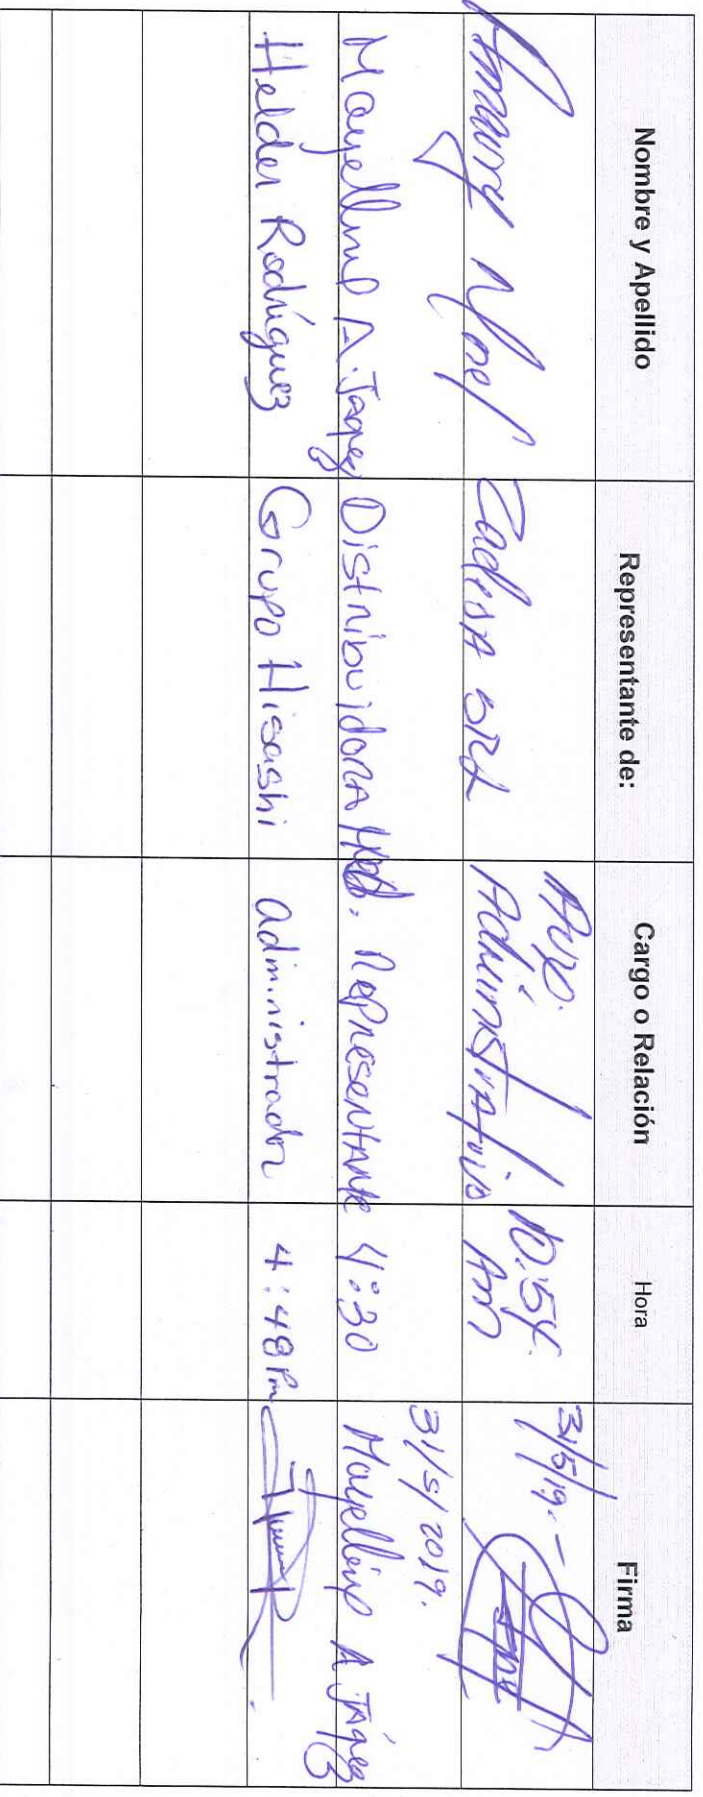 Nombre y Apellido Representante de: Cargo o Relación Hora Firma
Zadesa SRL Aux. Administrativo 10:54 Am 31/5/19.-
Mayelline A. Jáquez Distribuidora Representante 4:30 31/5/2019. Mayelline A. Jáquez
Helder Rodríguez Grupo Hisashi administrador 4:48 Pm